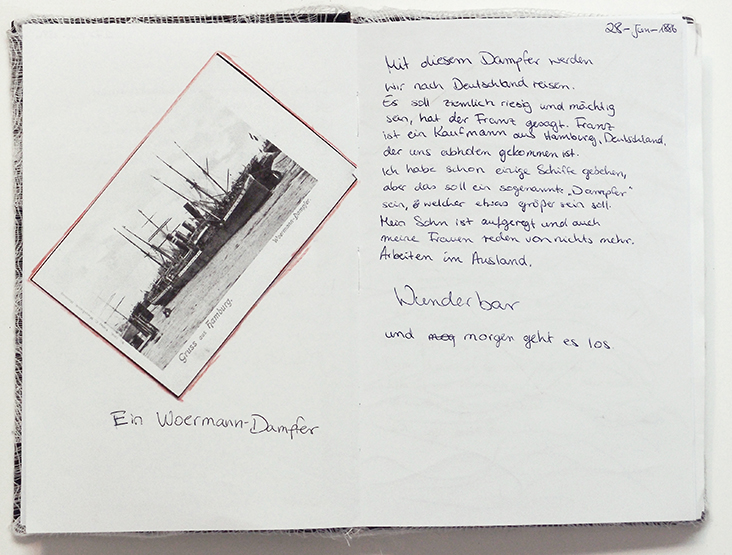 Gruss aus Hamburg.
Woermann-Dampfer.
Ein Woermann-Dampfer
28-Jun-1886
Mit diesem Dampfer werden
wir nach Deutschland reisen.
Es soll ziemlich riesig und mächtig
sein, hat der Franz gesagt. Franz
ist ein Kaufmann aus Hamburg, Deutschland,
der uns abholen gekommen ist.
Ich habe schon einige Schiffe gesehen,
aber das soll ein sogenannter „Dampfer"
sein, welcher etwas größer sein soll.
Mein Sohn ist aufgeregt und auch
meine Frauen reden von nichts mehr.
Arbeiten im Ausland.
Wunderbar
und morgen geht es los.